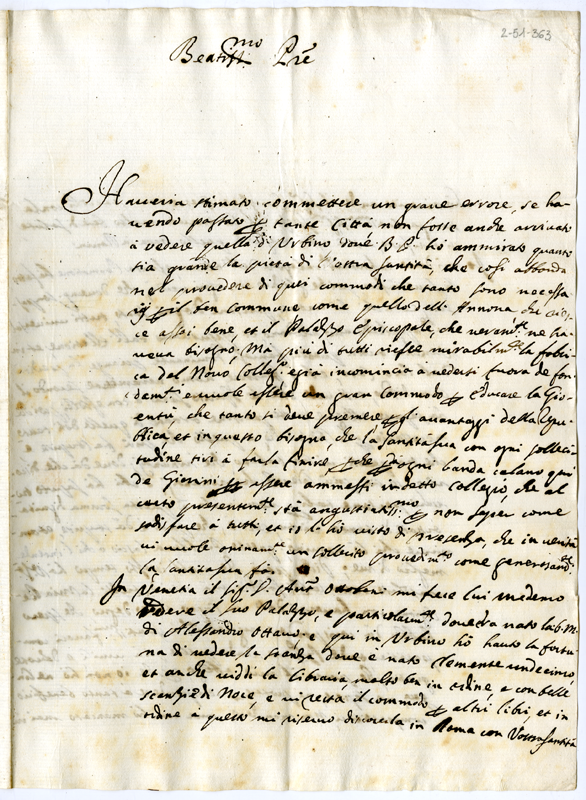 2-51-363
Beatiss.mo Pre
Haveria stimato commettere un grave errore, se ha-
vendo passato p tante Città non fosse anche arrivato
à vedere quella di Urbino dove B. P. hò ammirato quanto
sia grande la pietà di Vostra Santità, che così abonda
nel provedere di quei commodi che tanto sono necessa
rij p il ben commune come quello dell' Annona, che
ce assai bene, et il Palazzo Episcopale, che veram.te ne ha-
veva bisogno, Ma più di tutti riesce mirabilm.te la fabri-
ca del Novo Colleg.o e già incomincia à vedersi fuora de fon-
dam.ti e vuole essere un gran commodo p educare la Gio-
ventù, che tanto si deve premere p gl'avantaggi della Repu-
blica, et in questo bisogna che la Santità Sua con ogni solleci-
tudine tiri à farla finire p che d'ogni banda calano qui
de Giovini p essere ammessi in detto Collegio, che al
certo presentem.te stà angustiatiss.mo p non saper come
sodisfare à tutti, et io l'hò visto di presenza, che in verità
vi vuole oninam.te un sollecito provedim.to come generosam.te
la Santità Sua fà.
In Venetia il Sig.r P. Ant.o Ottoboni mi fece lui medemo
vedere il suo Palazzo, e particolarm.te dove era nato la b. M.
di Alessandro Ottavo e qui in Urbino hò hauto la fortu-
na di vedere la stanza dove è nato Clemente undecimo,
et anche viddi la libraria, molto ben in ordine, e con belle
scanzie di Noce, e vi resta il commodo p altri libri, et in
ordine à questo mi riservo discorrerla in Roma con Vostra Santità